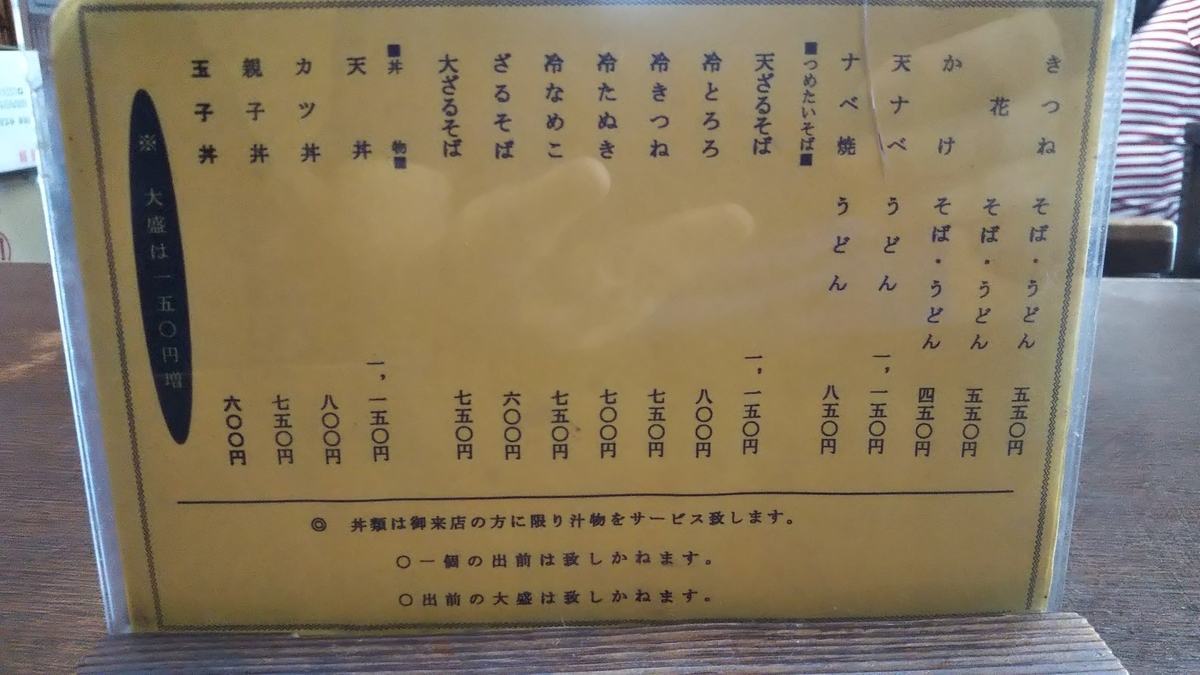 きつね そば・うどん 五五〇円
花 そば・うどん 五五〇円
かけ そば・うどん 四五〇円
天ナベ うどん 一,一五〇円
ナベ焼 うどん 八五〇円
■つめたいそば■
天ざるそば 一,一五〇円
冷とろろ 八〇〇円
冷きつね 七五〇円
冷たぬき 七〇〇円
冷なめこ 七五〇円
ざるそば 六〇〇円
大ざるそば 七五〇円
■丼物■
天丼 一,一五〇円
カツ丼 八〇〇円
親子丼 七五〇円
玉子丼 六〇〇円
※ 大盛は一五〇円増
◎ 丼類は御来店の方に限り汁物をサービス致します。
〇一個の出前は致しかねます。
〇出前の大盛は致しかねます。